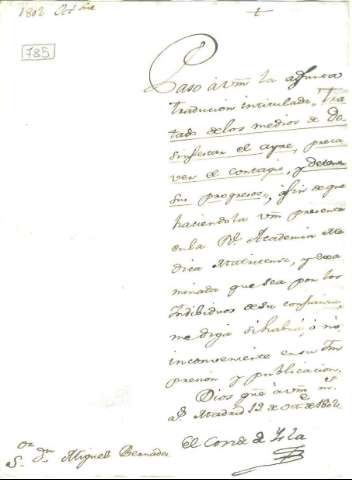 1802 Oct.bre
785
Paso à vm la adjunta
traducion intitulada, Tra
tado de los medios de De
sinfeccar el ayre, preca
ver el contagio, y detener
sus progresos, afin de que
haciendola vm presente
en la Rl. Academia Me
dica Matritense, y exa
minada que sea por los
Individuos de su confianza,
me diga si habrá, ó nó,
inconveniente en su Im
presion y publicacion.
Dios gue à vm ms.
as. Madrid 12 de Oct.e de 1802
El Conde de Isla
S.or Dn. Miguel Bernades